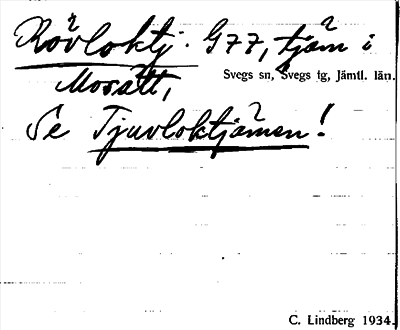 Rövloktj. G77, tjärn i
Morätt,
Svegs sn, Svegs tg, Jämtl. län.
Se Tjuvloktjärnen!
C. Lindberg 1934.